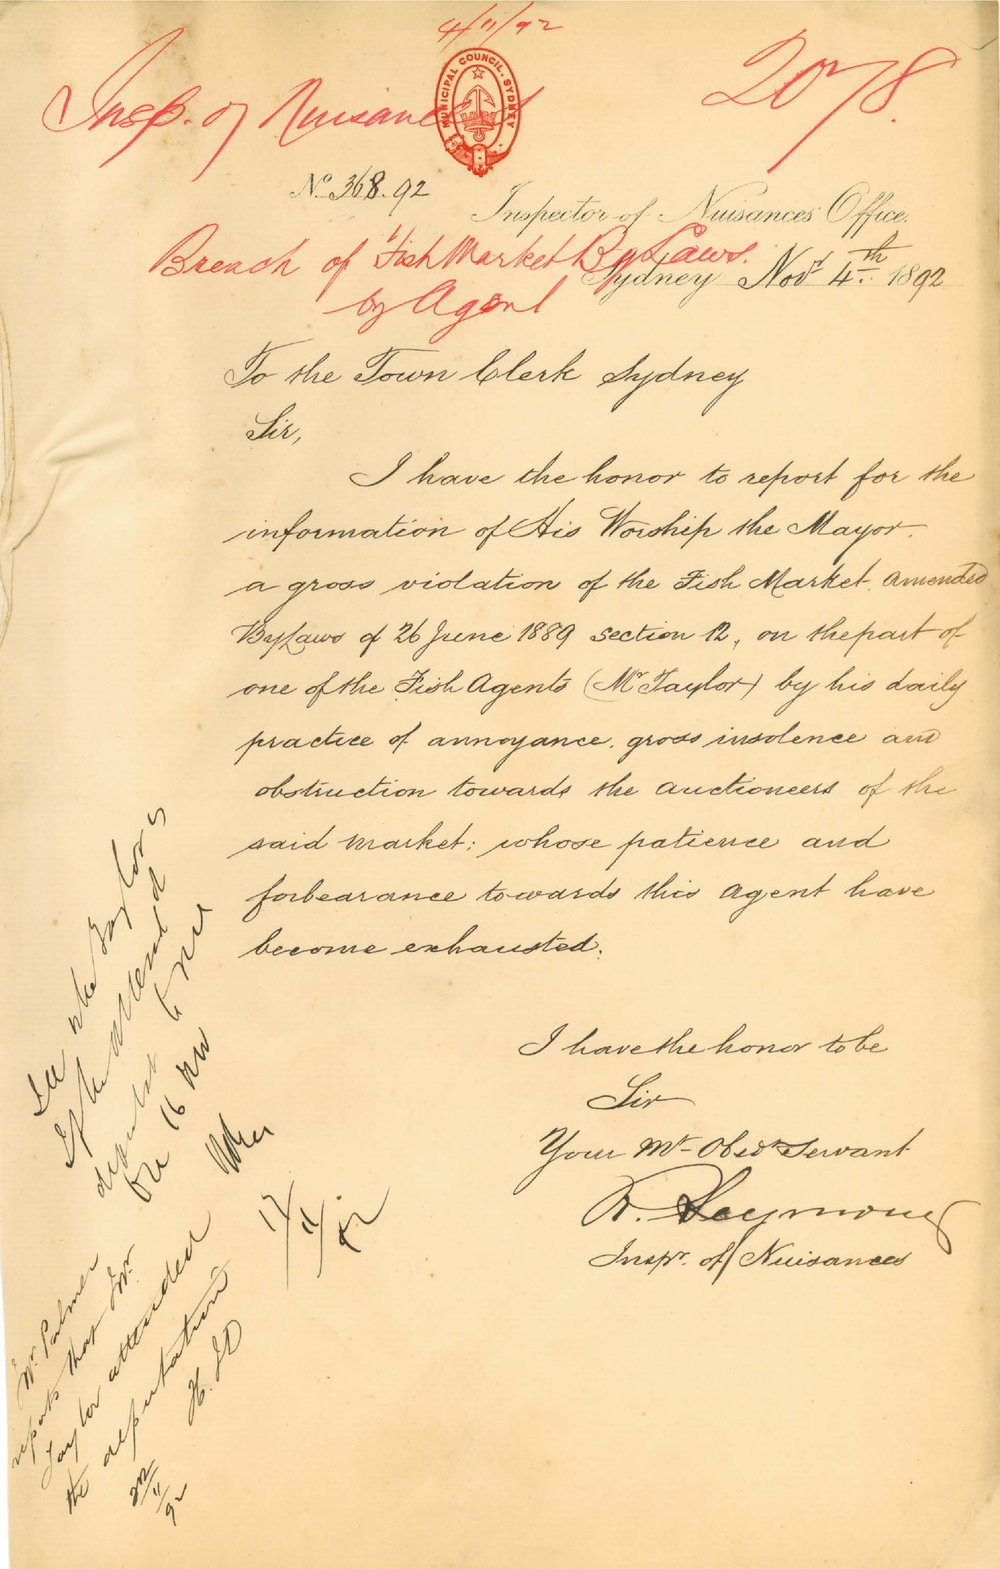 4/11/92
Insp. of Nuisances
2078.
MUNICIPAL COUNCIL. SYDNEY
No. 368.92
Inspector of Nuisances Office.
Breach of "Fish Market By Laws.
by Agent
Sydney Novr 4th 1892
To the Town Clerk Sydney
Sir,
I have the honor to report for the
information of His Worship the Mayor.
a gross violation of the Fish Market. amended
ByLaws of 26 June 1889 section 12, on the part of
one of the Fish Agents (Mr Taylor) by his daily
practice of annoyance. gross insolence and
obstruction towards the auctioneers of the
said market; whose patience and
forbearance towards this agent have
become exhausted.
I have the honor to be
Sir
Your Mt Obedt Servant
R. Seymour
Inspr. of Nuisances
See whe Taylor
If he attended
deputn to me
on 16 Nov
17/11/92
Mr. Palmer
reports that Mr.
Taylor attended
the deputation
H.SD
/11/92